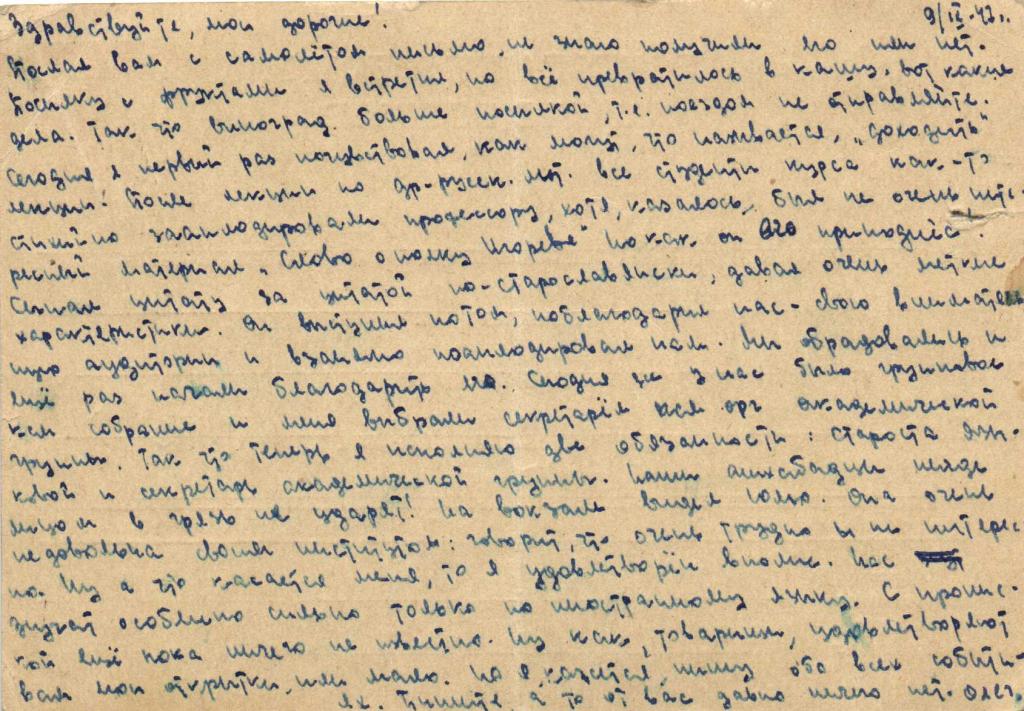 Здравствуйте, мои дорогие!
Послал вам с самолётом письмо, не знаю получили его или нет.
Посылку с фруктами я встретил, но всё превратилось в кашу. Вот какие
дела. Так что виноград больше посылкой, т.е. поездом не отправляйте.
Сегодня я первый раз почувствовал, как могут, что называется, „доходить"
лекции! После лекции по др-русск. лит. все студенты курса как-то
стихийно зааплодировали профессору, хотя, казалось, был не очень инте-
ресный материал „Слово о полку Игореве" Но как он его преподнёс.
Сыпал цитату за цитатой по-старославянски, давал очень меткие
характеристики. Он выступил потом, поблагодарил нас - свою вниматель-
ную аудиторию и взаимно поаплодировал нам. Мы обрадовались и
ещё раз начали благодарить его. Сегодня же у нас было групповое
ксм собрание и меня выбрали секретарём ксм орг академической
группы. Так что теперь я исполняю две обязанности: староста язы-
ковой и секретарь академической группы. Наши ашхабадцы нигде
лицом в грязь не ударят! На вокзале видел Юлю. Она очень
недовольна своим институтом: говорит, что очень трудно и не интерес-
но. Ну а что касается меня, то я удовлетворён вполне. Нас
жучат особенно сильно только по иностранному языку. С пропис-
кой ещё пока ничего не известно. Ну как, товарищи, удовлетворяют
вам мои открытки, или мало. Но я, кажется, пишу обо всех событи-
ях. Пишите, а то от вас давно ничего нет. Олег.